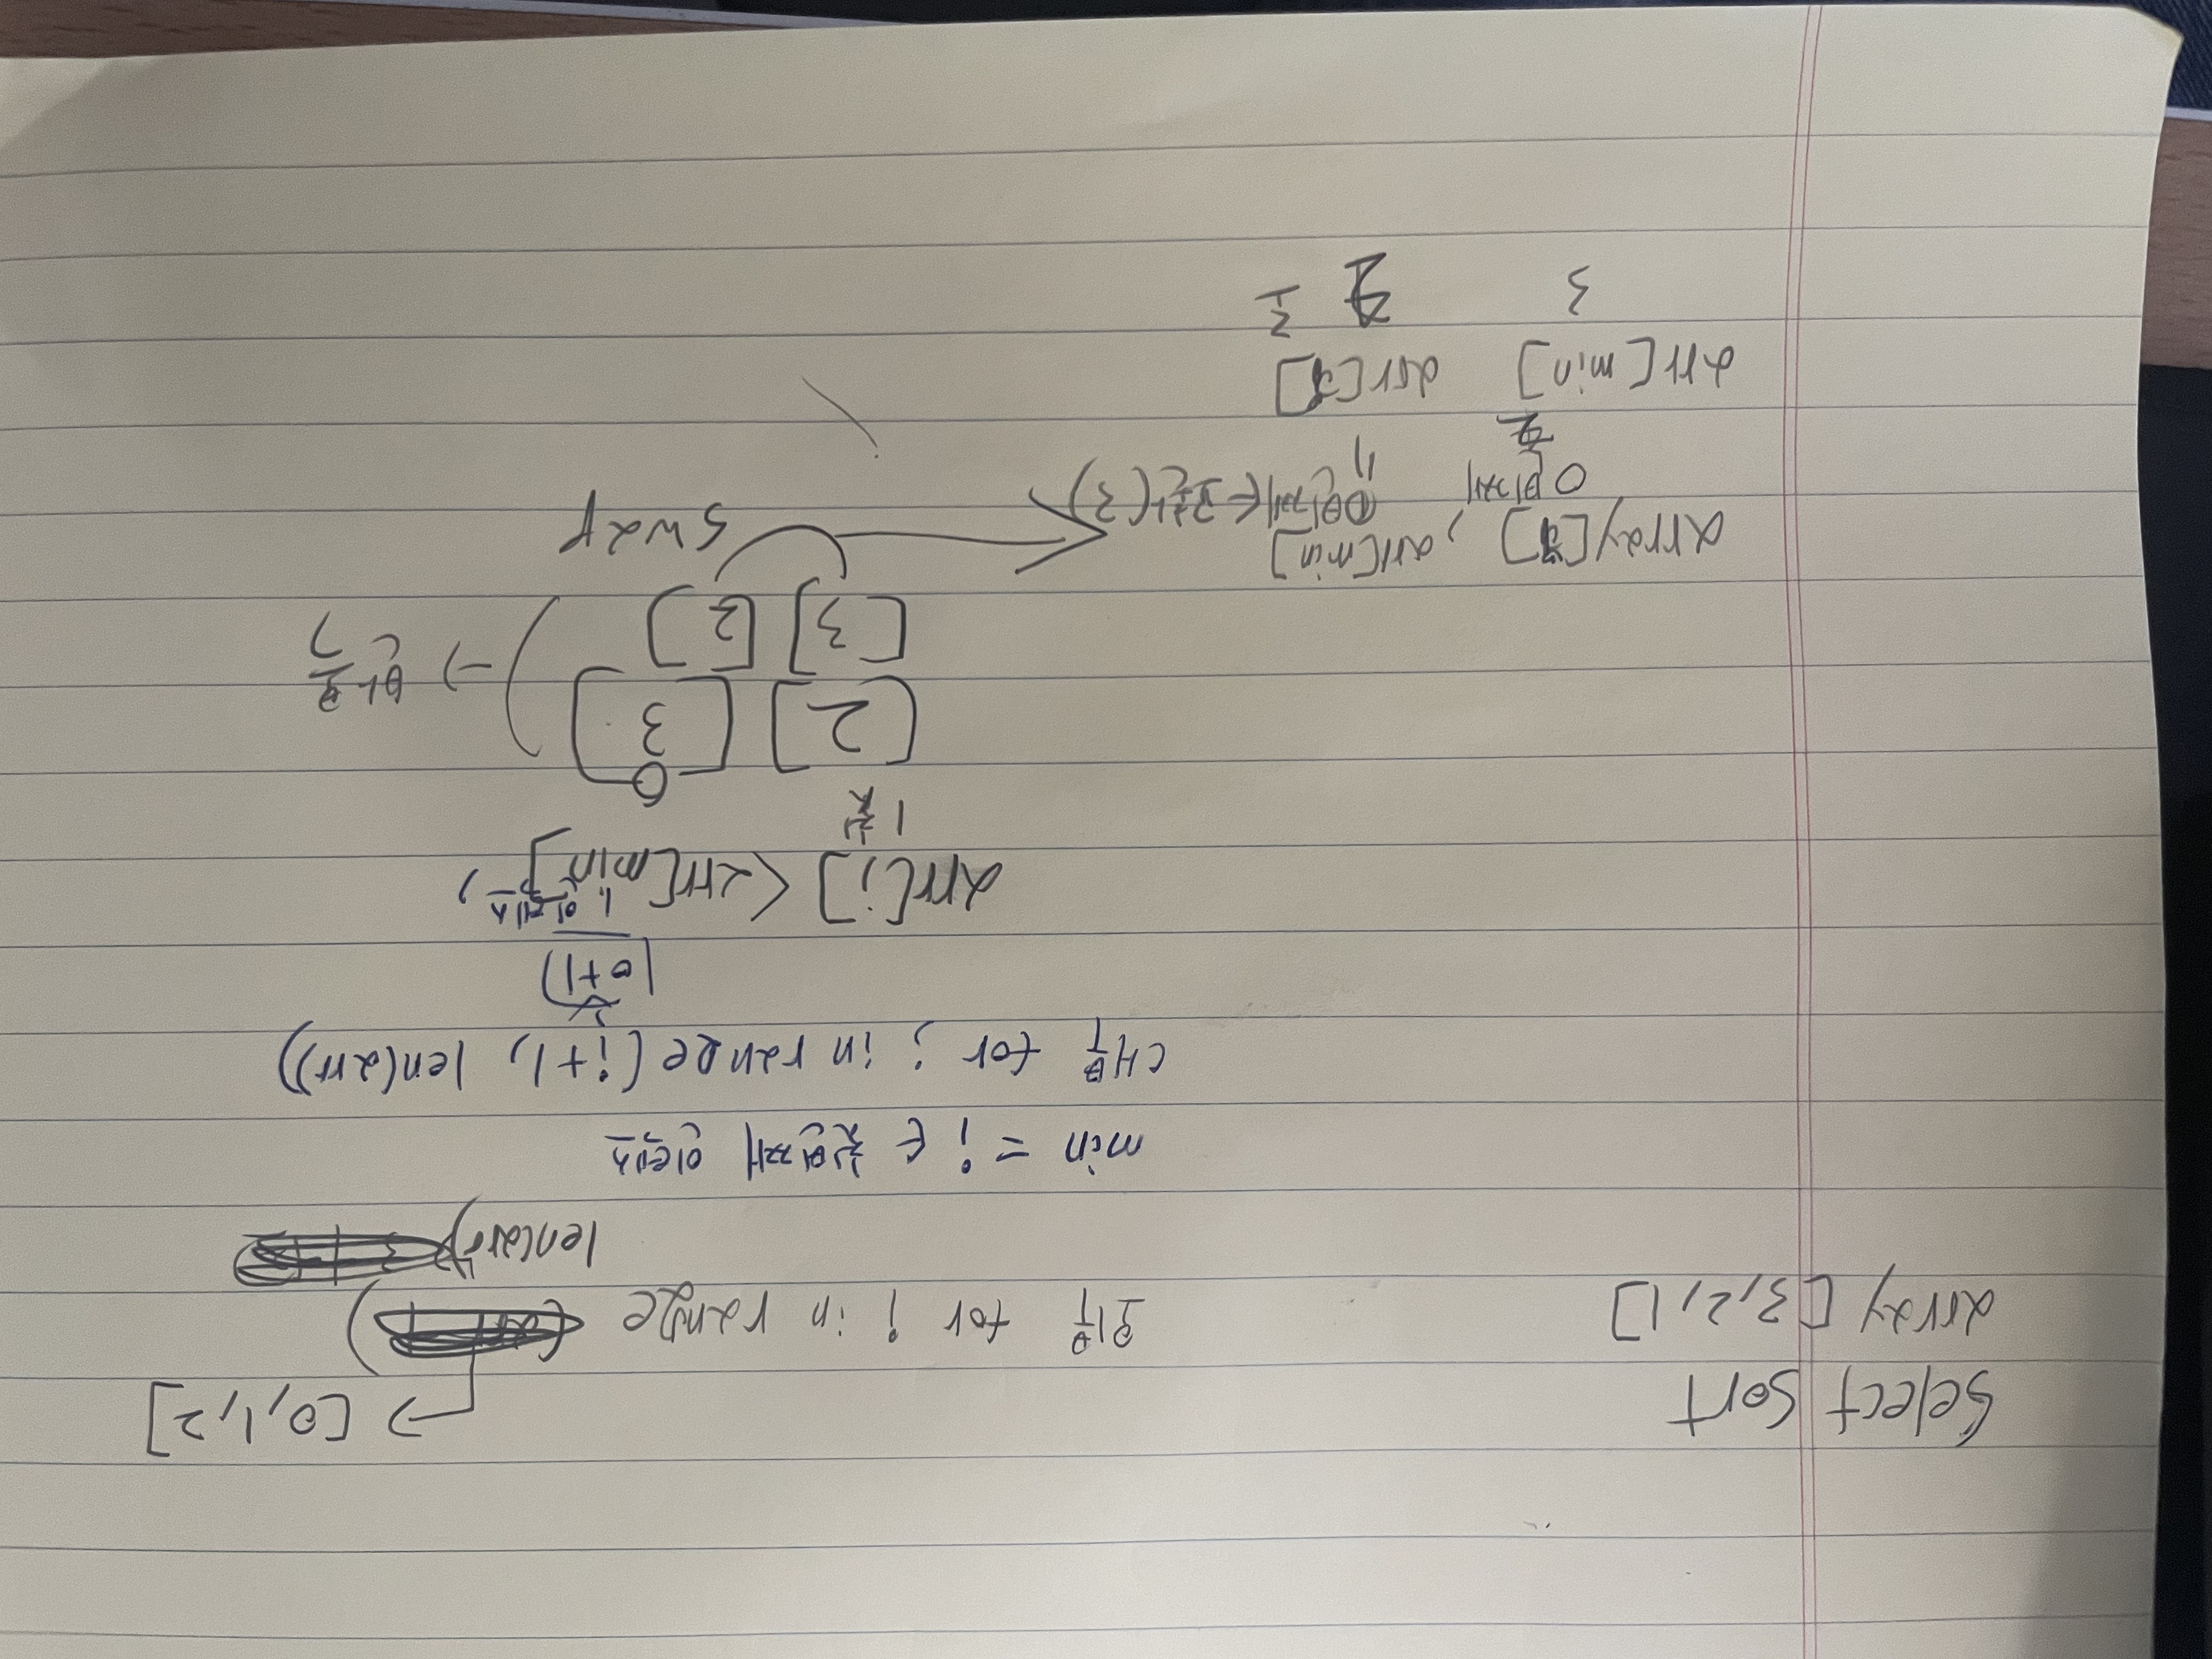 Select Sort
array [3,2,1]
→ [0,1,2]
외부 for i in range ( )
len(arr)
min = i ← 첫번째 인덱스
내부 for j in range (i+1, len(arr))
(0+1)
1. 인덱스,
arr[j] < arr[min]
1 첫
0
[2] [3]
[3] [2] → 반복
swap
array[i], arr[min]
0번째 0번째 ← 교환(3)
arr[min] arr[i]
3 2